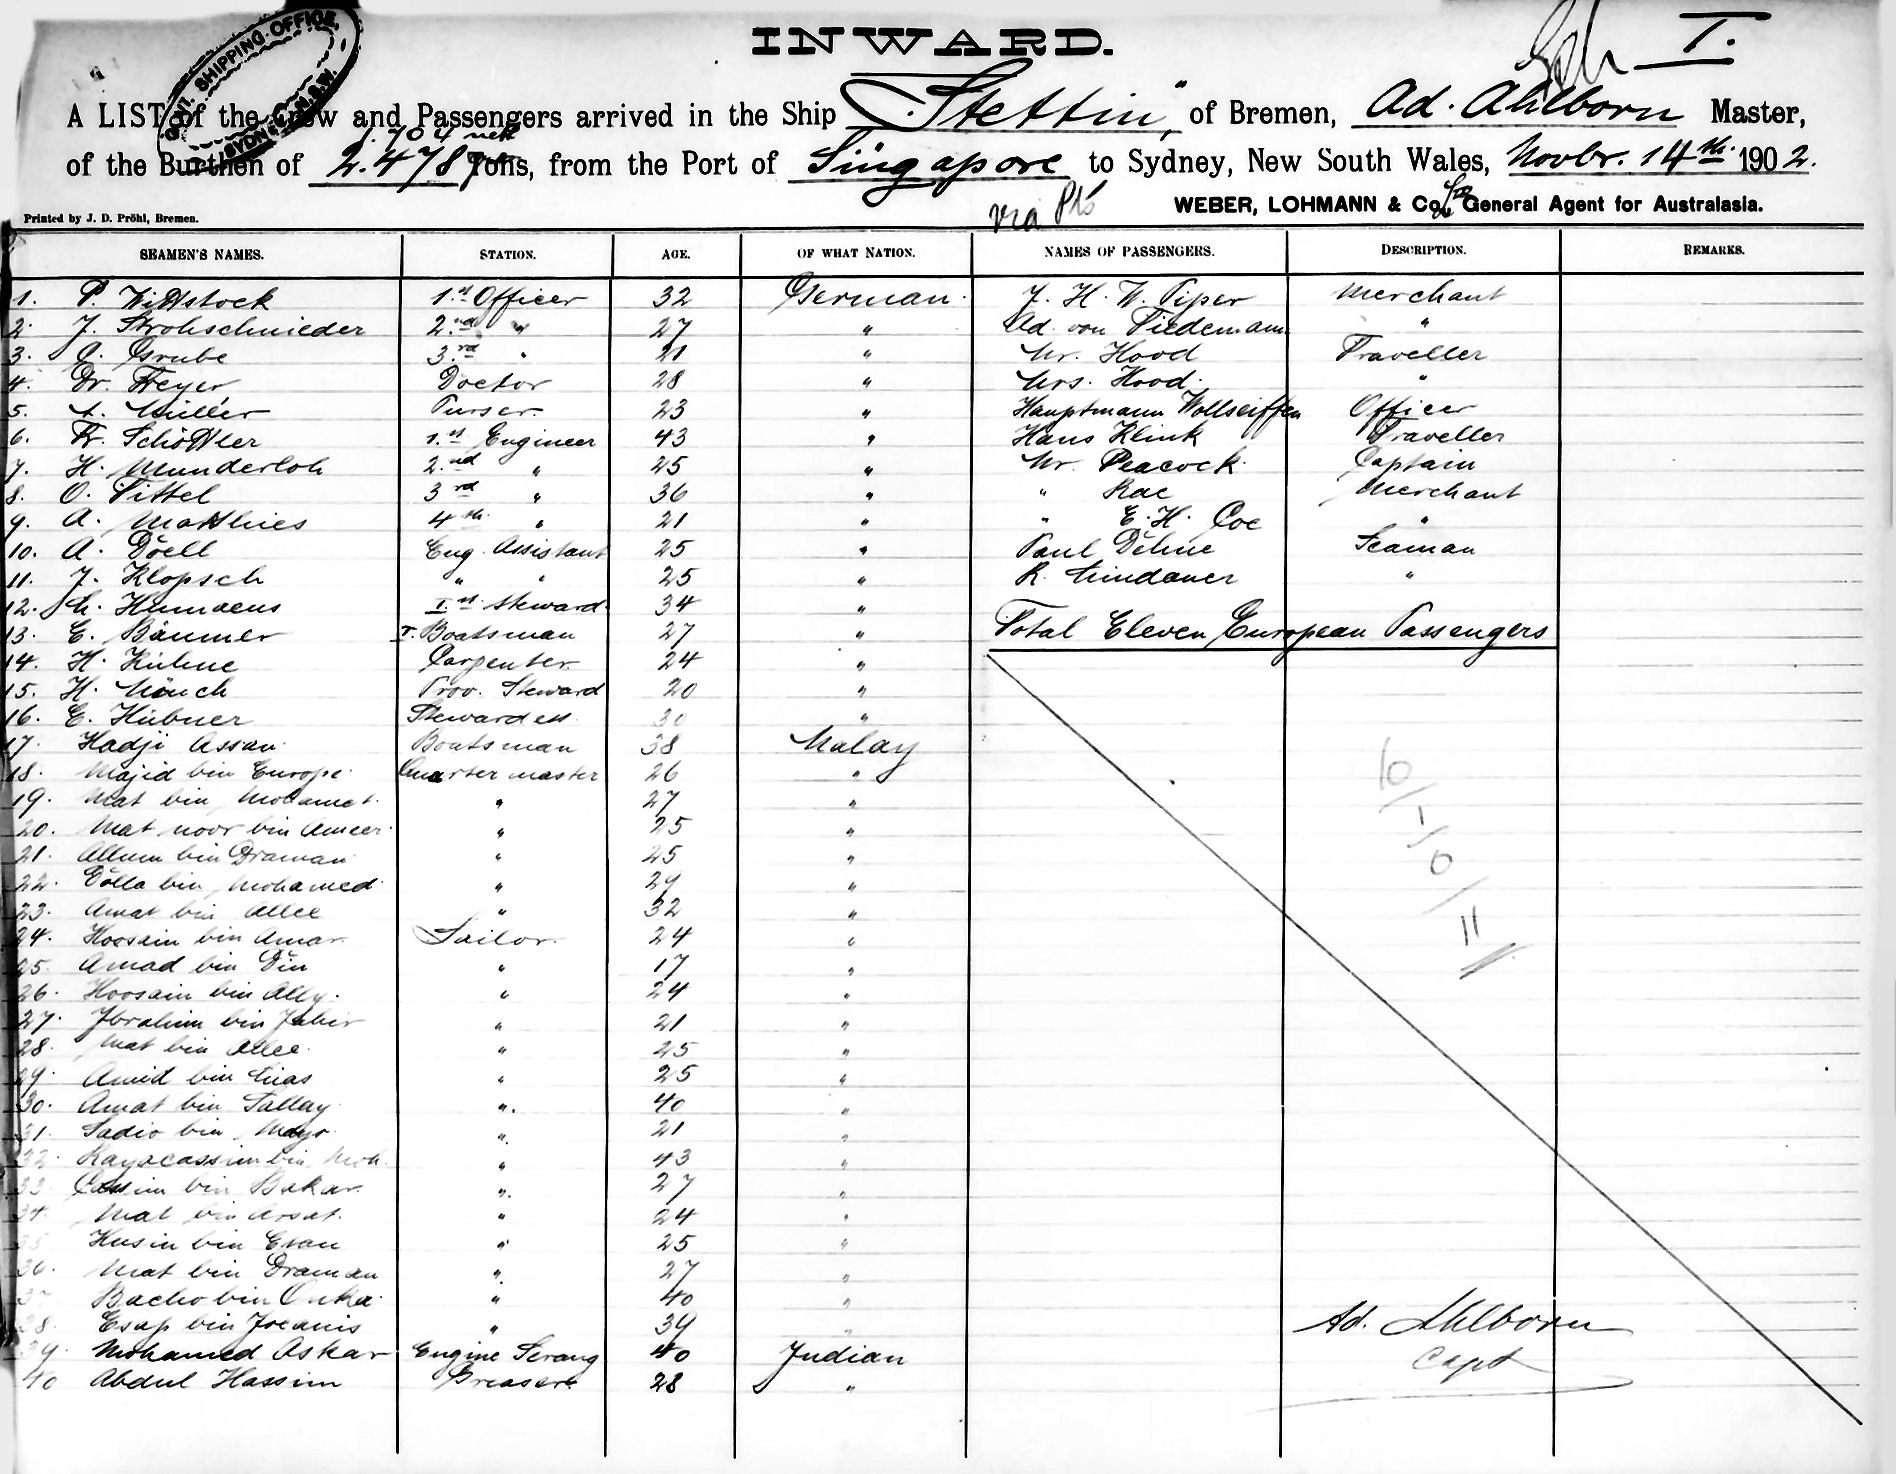 INWARD.
I.
GOVT. SHIPPING OFFICE, SYDNEY N.S.W.
A LIST of the Crew and Passengers arrived in the Ship "Stettin", of Bremen, Ad. Ahlborn Master,
1.704 nett
of the Burthen of 2.478 Tons, from the Port of Singapore to Sydney, New South Wales, Novbr. 14th. 1902.
via Pts
WEBER, LOHMANN & Co. General Agent for Australasia.
Printed by J. D. Pröhl, Bremen.
SEAMEN'S NAMES. STATION. AGE. OF WHAT NATION. NAMES OF PASSENGERS. DESCRIPTION. REMARKS.
1. P. Wittstock 1.st Officer 32 German. J. H. W. Piper Merchant
2. J. Strohschnieder 2.nd " 27 " Ad. von Tiedemann "
3. C. Grube 3.rd " 21 " Mr. Hood Traveller
4. Dr. Freyer Doctor 28 " Mrs. Hood. "
5. A. Müller Purser. 23 " Hauptmann Wollseiffen Officer
6. Fr. Schöttler 1.st Engineer 43 " Hans Klink Traveller
7. H. Munderloh 2.nd " 25 " Mr. Peacock. Captain
8. O. Pittel 3rd " 36 " " Rae Merchant
9. A. Matthies 4th. " 21 " " E. H. Coe "
10. A. Döell Eng. Assistant 25 " Paul Dehne Seaman
11. J. Klopsch " " 25 " R. Lindauer "
12. Humaens I.st Steward. 34 "
13. E. Bäumer I. Boatsman 27 " Total Eleven European Passengers
14. H. Kühne Carpenter 24 "
15. H. Mönch Prov. Steward 20 "
16. E. Hübner Stewardess. 30 "
17. Hadji Assan. Boatsman 38 Malay
18. Majid bin Europe. Quartermaster 26 "
19. Mat bin Mohamet. " 27 "
20. Mat noor bin Ameer. " 25 "
21. Allum bin Draman " 25 "
22. Dolla bin Mohamed. " 29 "
23. Amat bin Allee " 32 "
24. Hoosain bin Amar. Sailor. 24 "
25. Amad bin Din " 17 "
26. Hoosain bin Ally. " 24 "
27. Ibrahim bin Jahir " 21 "
28. Mat bin Allee. " 25 "
29. Amid bin Lias " 25 "
30. Amat bin Sallay. ". 40 "
31. Sadio bin Mayo. ". 21 "
32. Kayacassim bin Moh. " 43 "
33. Cassim bin Bakar. ". 27 "
34. Mat bin Arsat. " 24 "
35 Husin bin Esau " 25 "
36. Mat bin Draman ". 27 "
37 Bacho bin Onka. " 40 "
38. Esap bin Joeanis " 39 "
39. Mohamed Askar Engine Serang 40 Indian
40 Abdul Hassim Greaser. 28 "
10/1/0/11
Ad. Ahlborn
Capt